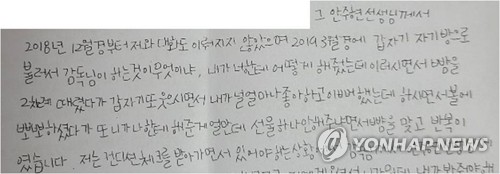 그 안주현선생님께서
2018년 12월경부터 저와 대화도 이뤄지지 않았으며 2019 3월경에 갑자기 자기방으로
불러서 감독님이 하는것이무엇이냐, 내가너한테 어떻게 해줬는데 이러시면서 뺨을
2차례 때렸다가 갑자기또웃으시면서 내가널얼마나좋아하고이뻐했는데 하시면서볼에
뽀뽀하셨다가 또 니가나한테해준게얼만데 선물하나안해주냐면서뺨을 맞고 반복이
였습니다. 저는 컨디션체크를받아가면서 있어야하는상황
연합뉴스
YONHAP NEWS